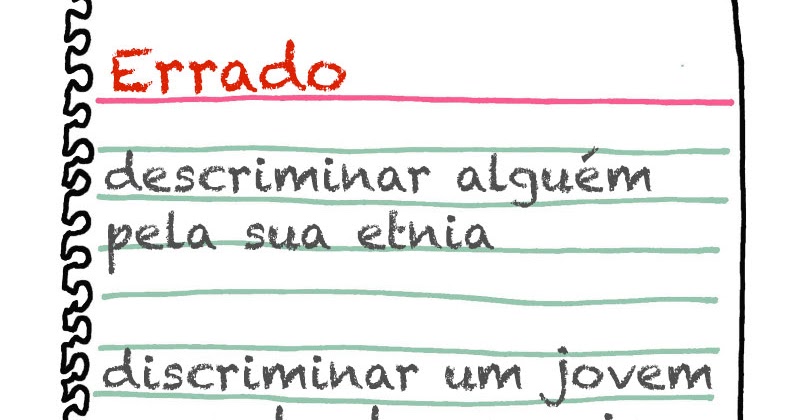 Errado
descriminar alguém
pela sua etnia
discriminar um jovem